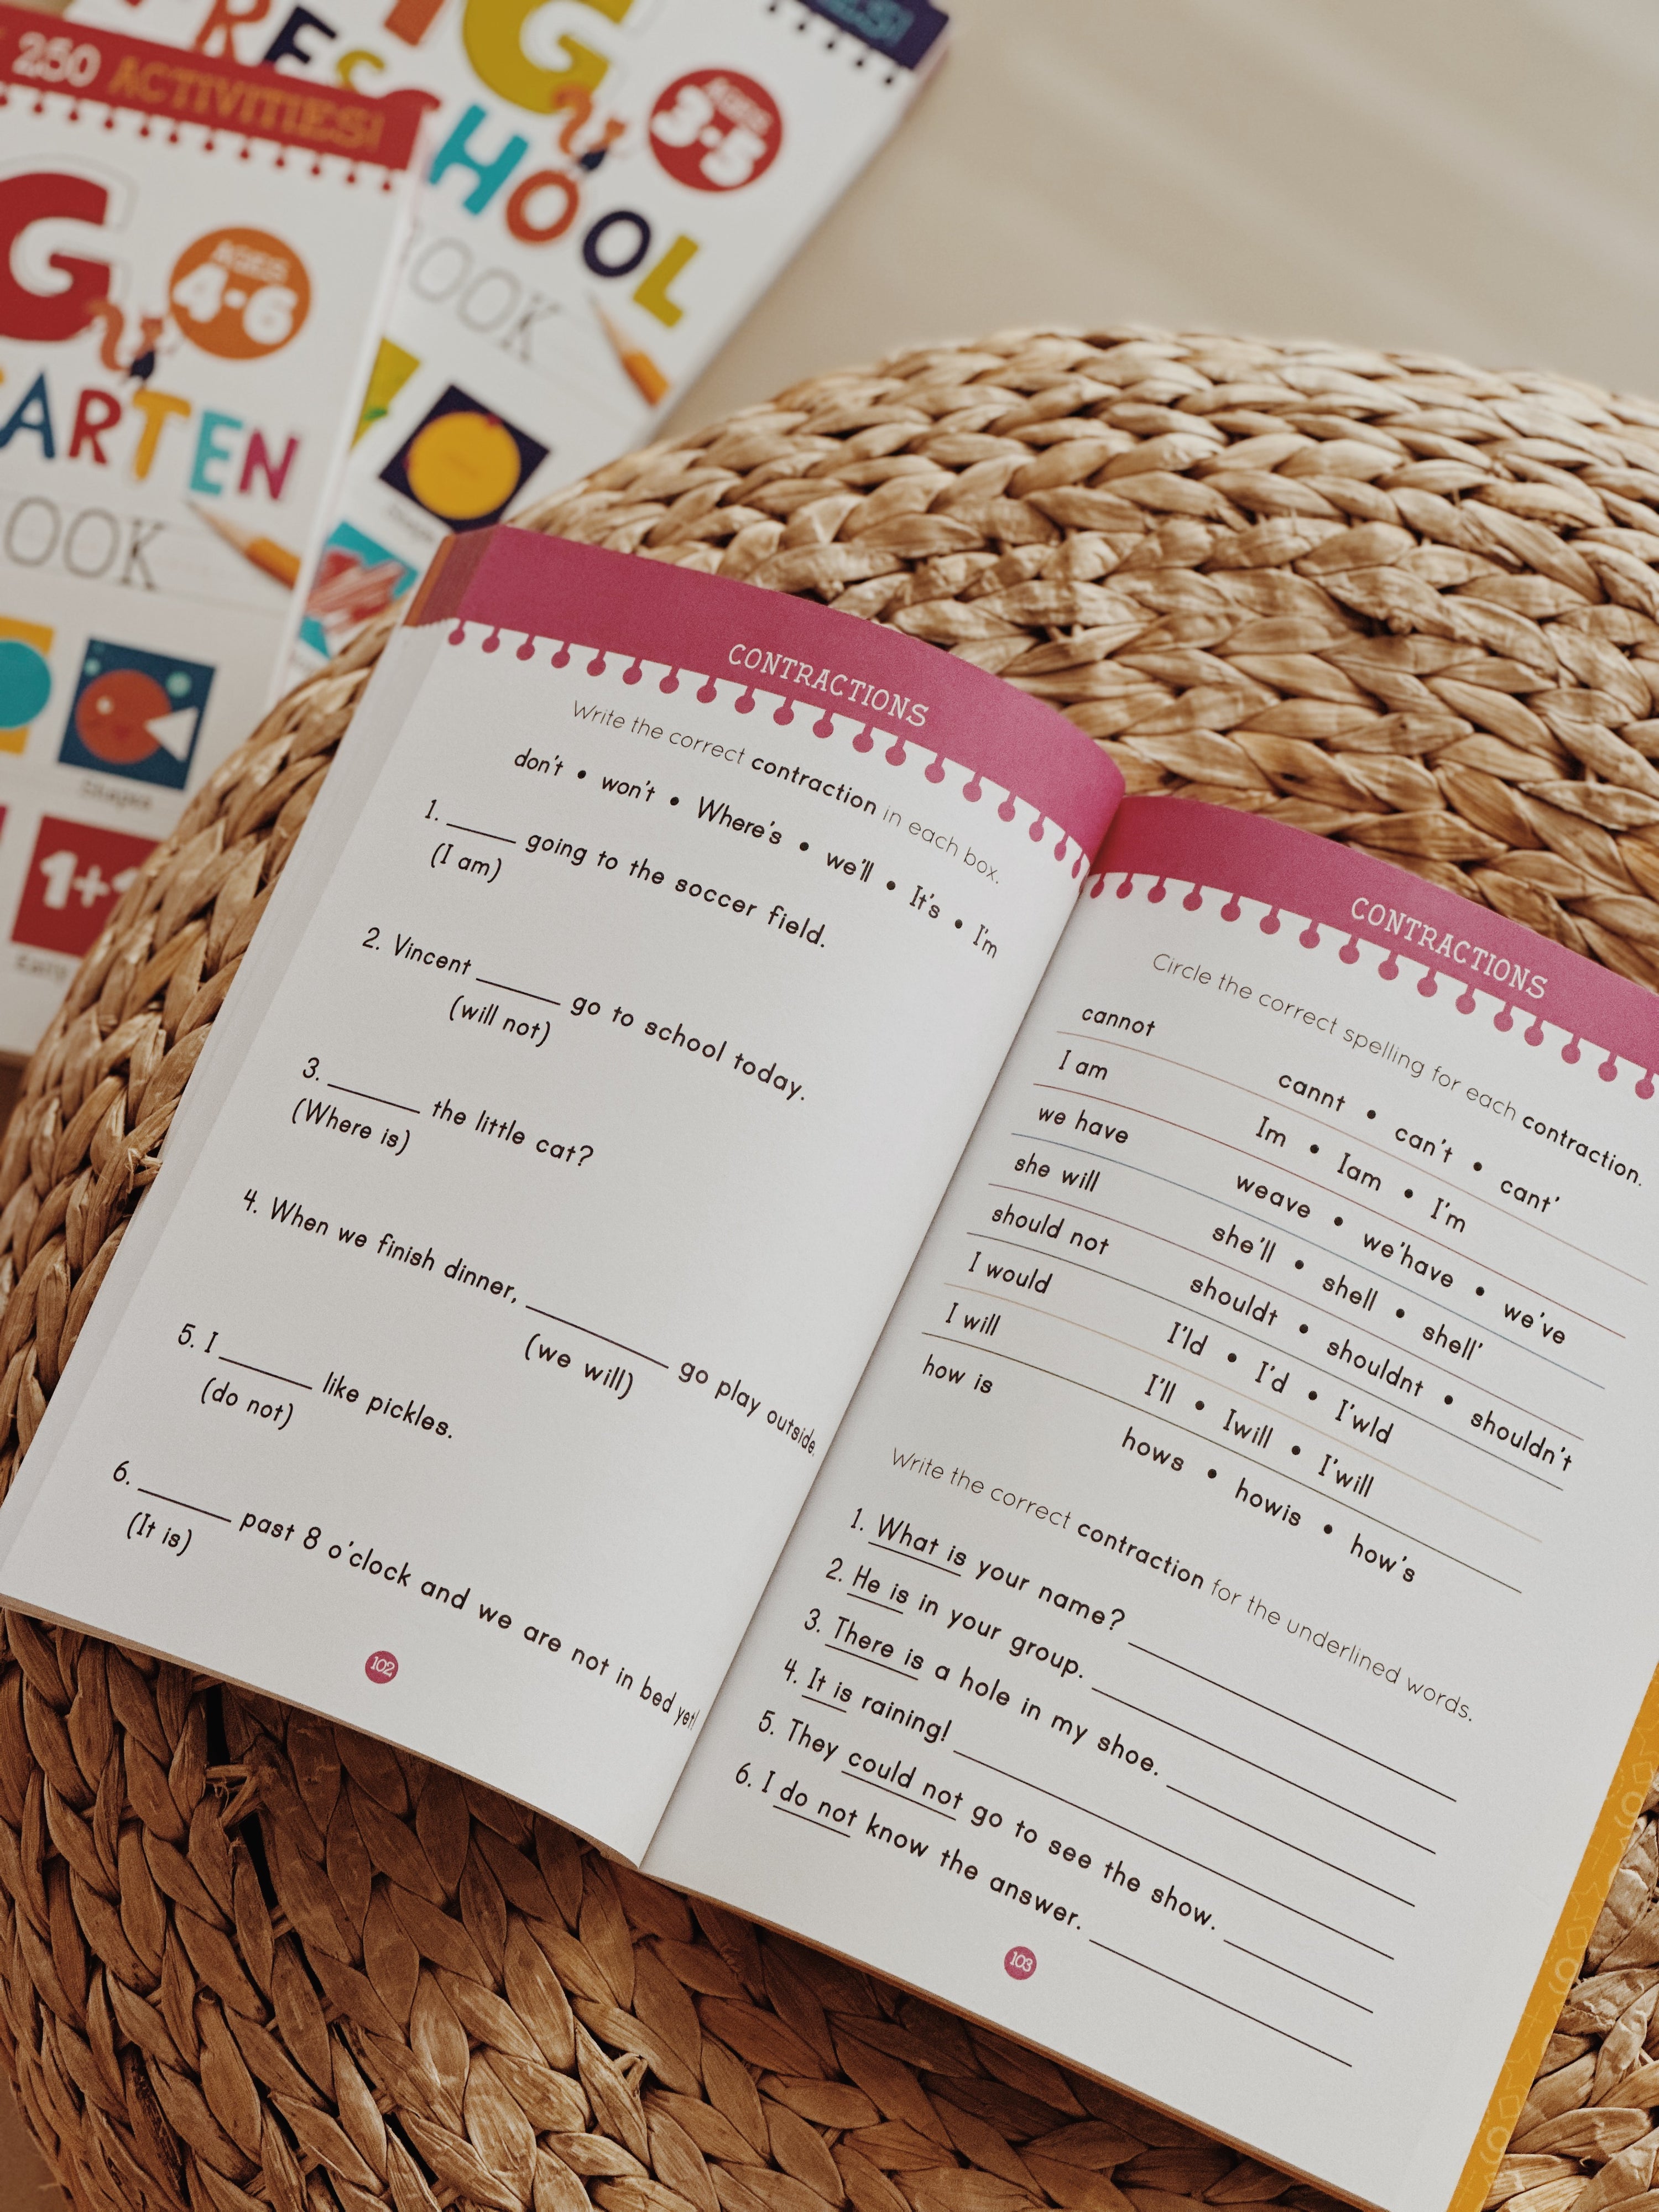 250 ACTIVITIES!
G
AGES
4-6
ARTEN
OOK
Shapes
1+1
G
PRESCHOOL
AGES
3-5
OOK
CONTRACTIONS
Write the correct contraction in each box.
don't • won't • Where's • we'll • It's • I'm
1. _____ going to the soccer field.
(I am)
2. Vincent _____ go to school today.
(will not)
3. _____ the little cat?
(Where is)
4. When we finish dinner, _____ go play outside.
(we will)
5. I _____ like pickles.
(do not)
6. _____ past 8 o'clock and we are not in bed yet!
(It is)
102
CONTRACTIONS
Circle the correct spelling for each contraction.
cannot cannt • can't • cant'
I am Im • Iam • I'm
we have weave • we'have • we've
she will she'll • shell • shell'
should not shouldt • shouldnt • shouldn't
I would I'ld • I'd • I'wld
I will I'll • Iwill • I'will
how is hows • howis • how's
Write the correct contraction for the underlined words.
1. What is your name? _____
2. He is in your group. _____
3. There is a hole in my shoe. _____
4. It is raining! _____
5. They could not go to see the show. _____
6. I do not know the answer. _____
103